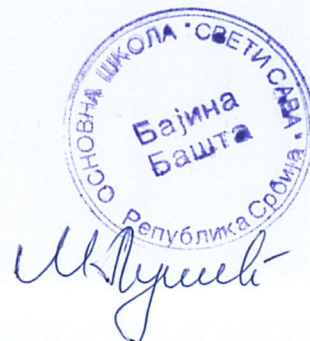 ОСНОВНА ШКОЛА "СВЕТИ САВА"
Бајина
Башта
Република Србија